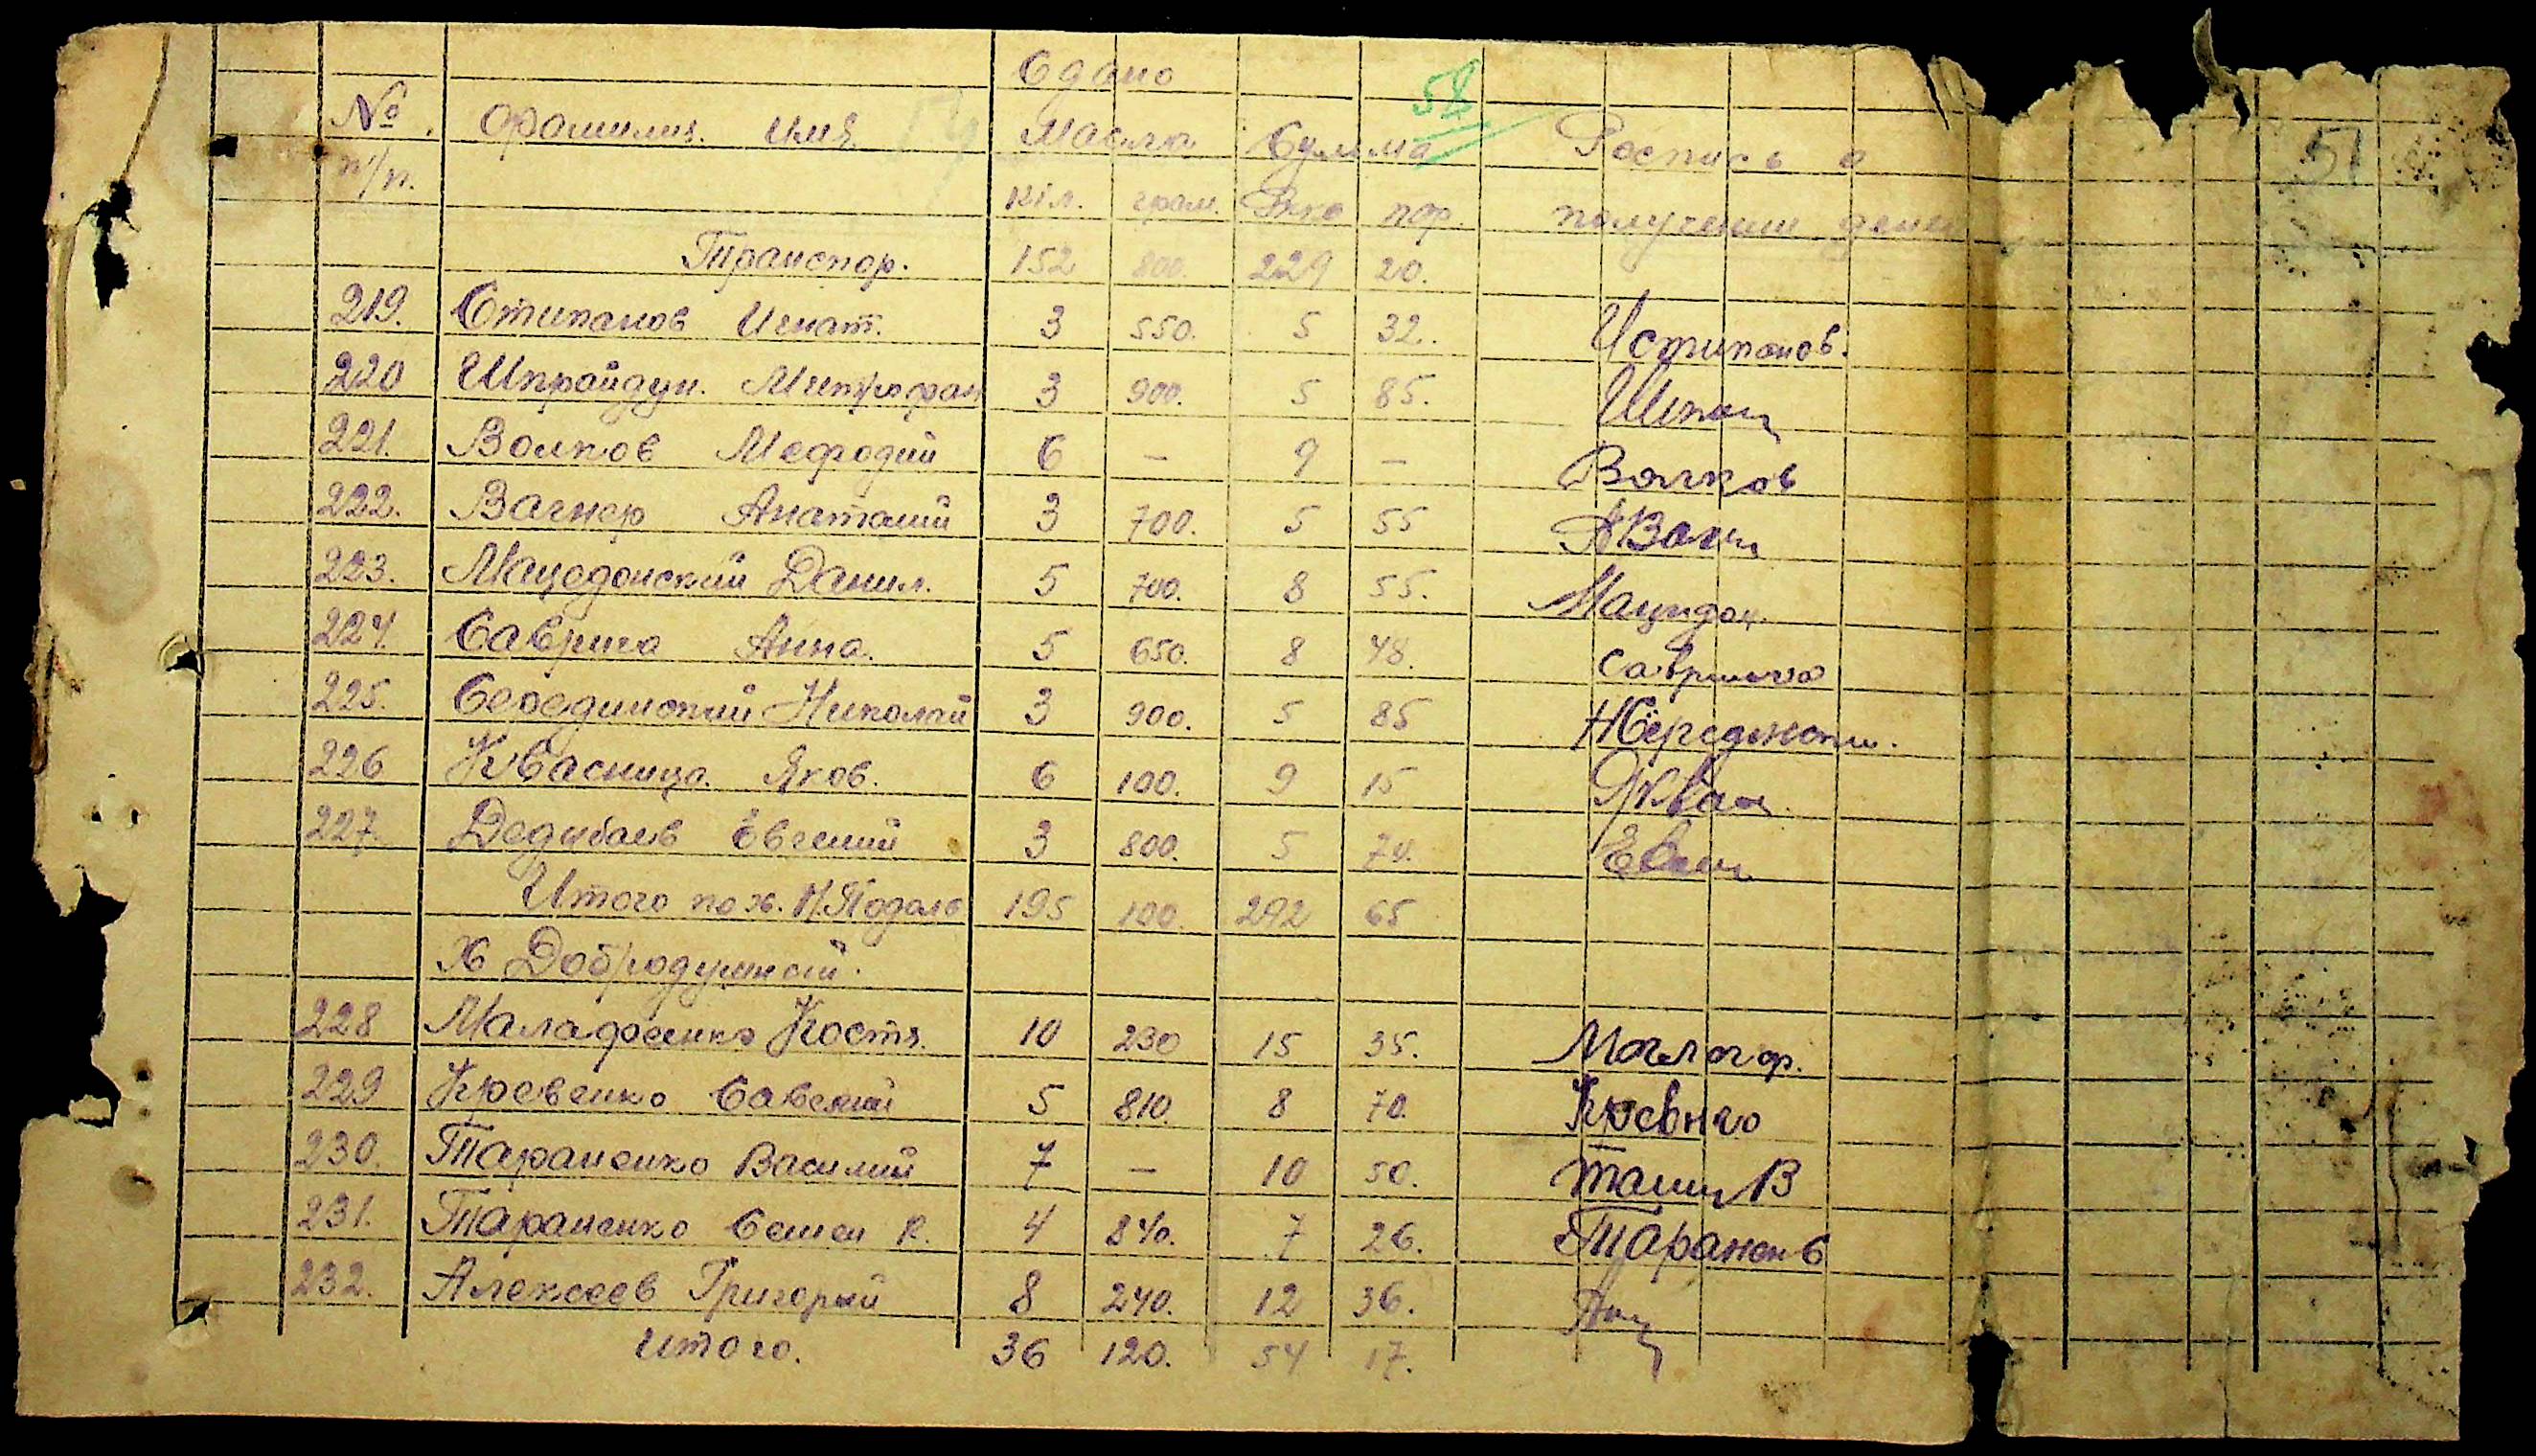 Сдано
58
№ Фамилия. Имя Масла Сумма Роспись о
51
п/п. кіл. грам. пф. получении денег
Транспор. 152 800. 229 20.
219. Стипанов Игнат. 3 550. 5 32. Истипанов.
220 Шпрайдун. Митрофан 3 900. 5 85. Шпи
221. Волков Мефодий 6 — 9 — Волков
222. Вагнер Анаталий 3 700. 5 55 АВагн
223. Мацедонский Данил. 5 700. 8 55. Мацидон.
224. Саврига Анна. 5 650. 8 48. Саврига
225. Серединский Николай 3 900. 5 85
226 Квасница. Яков. 6 100. 9 15 ЯКвас
227. Дедибаев Евгений 3 800. 5 74. Евген
Итого по х. Н.Подоль 195 100. 292 65
Х Добродушной.
228 Малафеенко Костя. 10 230 15 35. Малаф.
229 Кревенко Савелий 5 810. 8 70. Кревнко
230. Тараненко Василий 7 — 10 50. В
231. Тараненко Семен К. 4 840. 7 26. Таранен С
232. Алексеев Григорий 8 240. 12 36.
Итого. 36 120. 54 17.